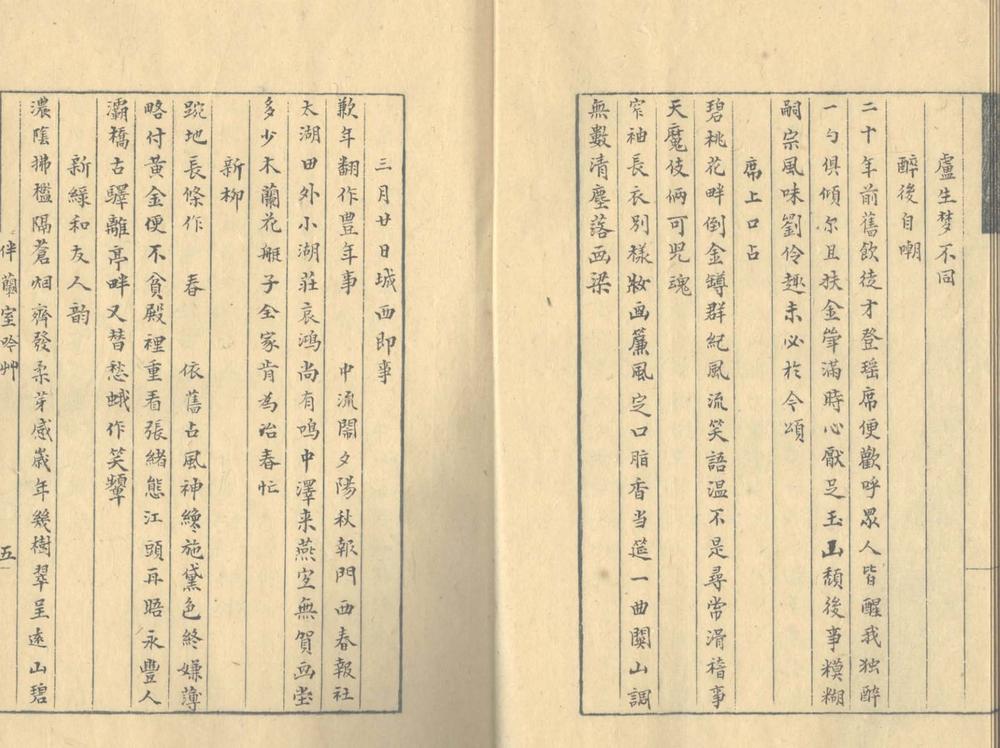 盧生梦不同
醉後自嘲
二十年前舊飲徒才登瑶席便歡呼眾人皆醒我独醉
一勺俱傾尔且扶金箏滿時心厭足玉山頹後事糢糊
嗣宗風味劉伶趣未必於今頌
席上口占
碧桃花畔倒金罇群紀風流笑語温不是尋常滑稽事
天魔伎俩可児魂
窄袖長衣別樣妝画簾風定口脂香当筵一曲関山調
無数清塵落画梁
三月廿日城西即事
歉年翻作豊年事 中流閙夕陽秋報門西春報社
太湖田外小湖莊哀鴻尚有鳴中澤来燕空無賀画堂
多少木蘭花艇子全家肯為冶春忙
新柳
踠地長條作 春 依舊占風神纔施黛色終嫌薄
略付黃金便不貧殿裡重看張緒態江頭再晤永豐人
灞橋古驛離亭畔又替愁蛾作笑顰
新緑和友人韵
濃陰拂檻隔蒼烟齊發柔芽感歳年幾樹翠呈遠山碧
伴蘭室吟艸 五